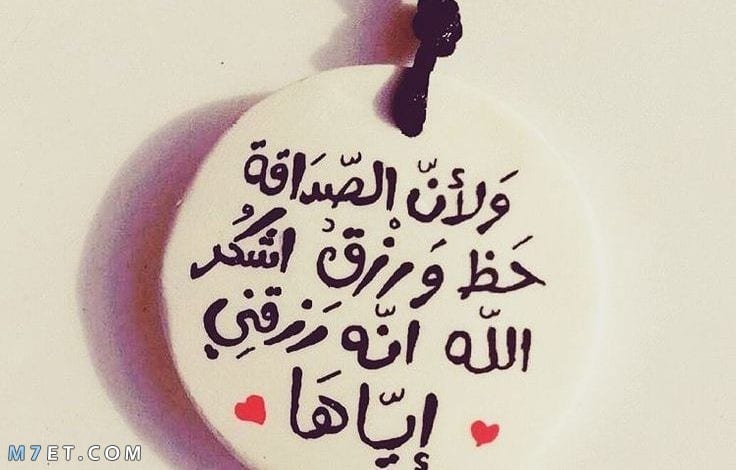 وَلأنّ الصّدَاقة
حَظ وَرزْقْ اشكُر
اللّه انّه رَزقنِي
إيّاهَا
M7ET.COM